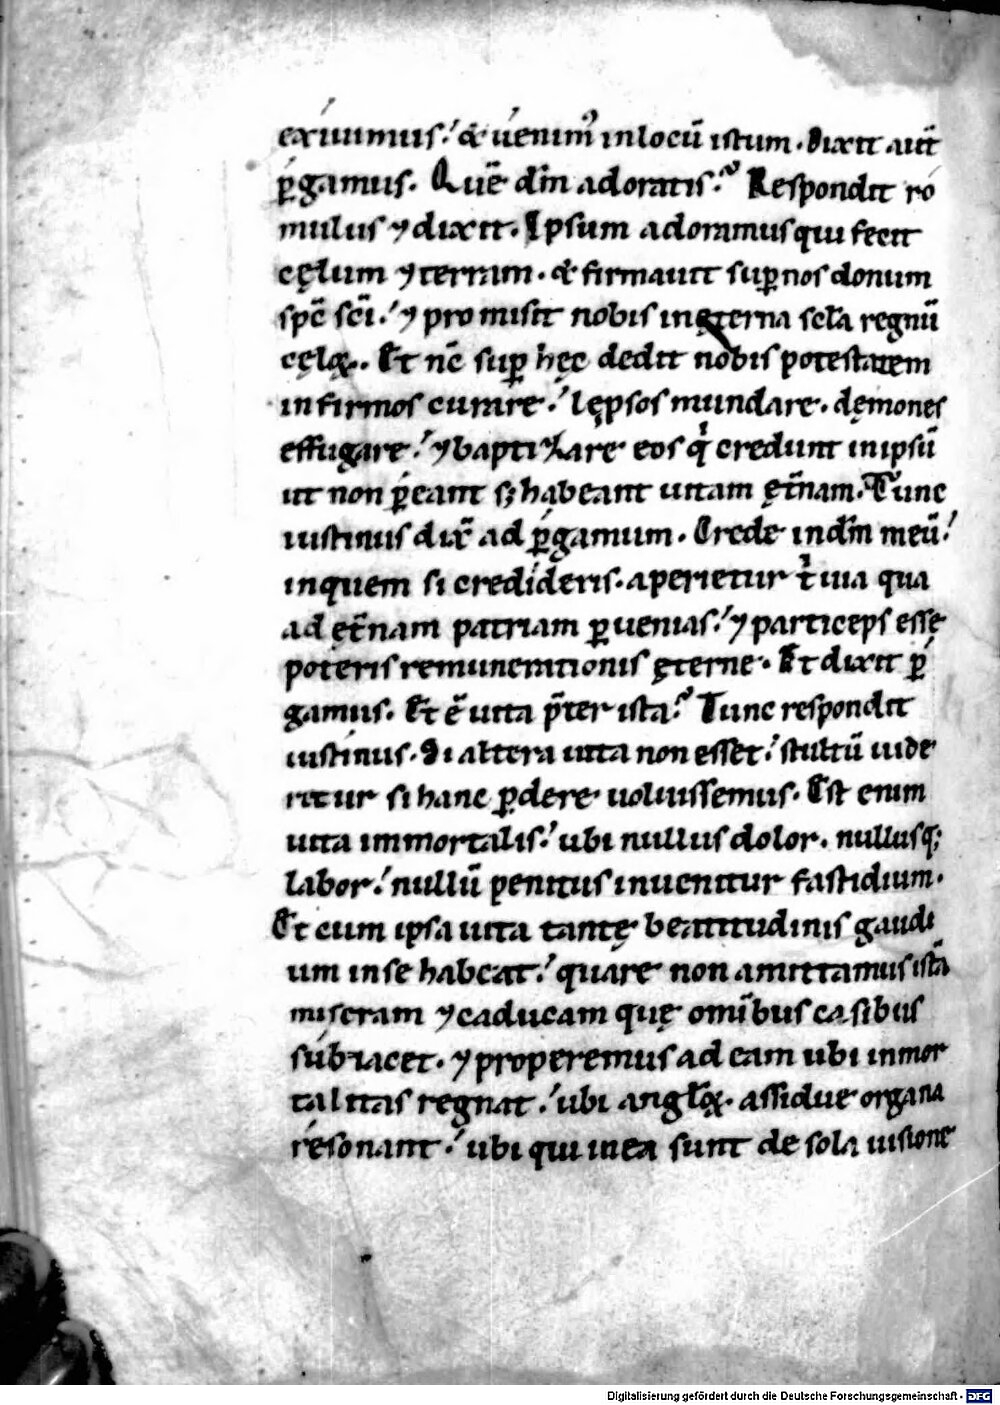 exiuimus; & uenim᷒ in locū istum. Dixit aūt
ꝑgamus. Quē dn̄m adoratis? Respondit ro
mulus ⁊ dixit. Ipsum adoramus qui fecit
cęlum ⁊ terram. & firmauit suꝑ nos donum
sp̄c sc̄i; ⁊ promisit nobis in ęterna sc̄la regnū
cęloꝝ. Et nc̄ suꝑ hęc dedit nobis potestatem
infirmos curare; lępsos mundare. dęmones
effugare; ⁊ baptizare eos qͥ credunt in ipsū
ut non ꝑeant sꝫ habeant uitam ęt̄nam. Tunc
iustinus dix̄ ad ꝑgamum. Crede in dn̄m meū;
in quem si credideris. aperietur tͥ uia qua
ad ęt̄nam patriam ꝑuenias; ⁊ particeps esse
poteris remunerationis ęterne. Et dixit ꝑ
gamus. Et ē uita p̄ter ista? Tunc respondit
iustinus. Si altera uita non esset; stultū uide
retur si hanc ꝑdere uoluissemus. Est enim
uita immortalis; ubi nullus dolor. nullusqꝫ
labor; nullū penitus inuenitur fastidium.
Et cum ipsa uita tantę beatitudinis gaudi
um in se habeat; quare non amittamus istā
miseram ⁊ caducam quę om̄ibus casibus
subiacet. ⁊ properemus ad eam ubi inmor
talitas regnat; ubi angl̄oꝝ. assidue organa
resonant; ubi qui in ea sunt de sola uisione
Digitalisierung gefördert durch die Deutsche Forschungsgemeinschaft - DFG